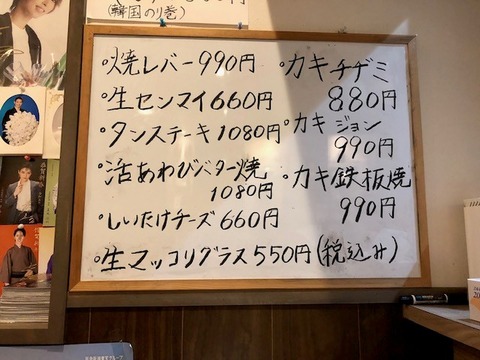 (韓国のり巻)
・焼レバー990円
・生センマイ660円
・タンステーキ1080円
・活あわびバター焼
1080円
・しいたけチーズ660円
・生マッコリグラス550円(税込み)
・カキチヂミ
880円
・カキジョン
990円
・カキ鉄板焼
990円